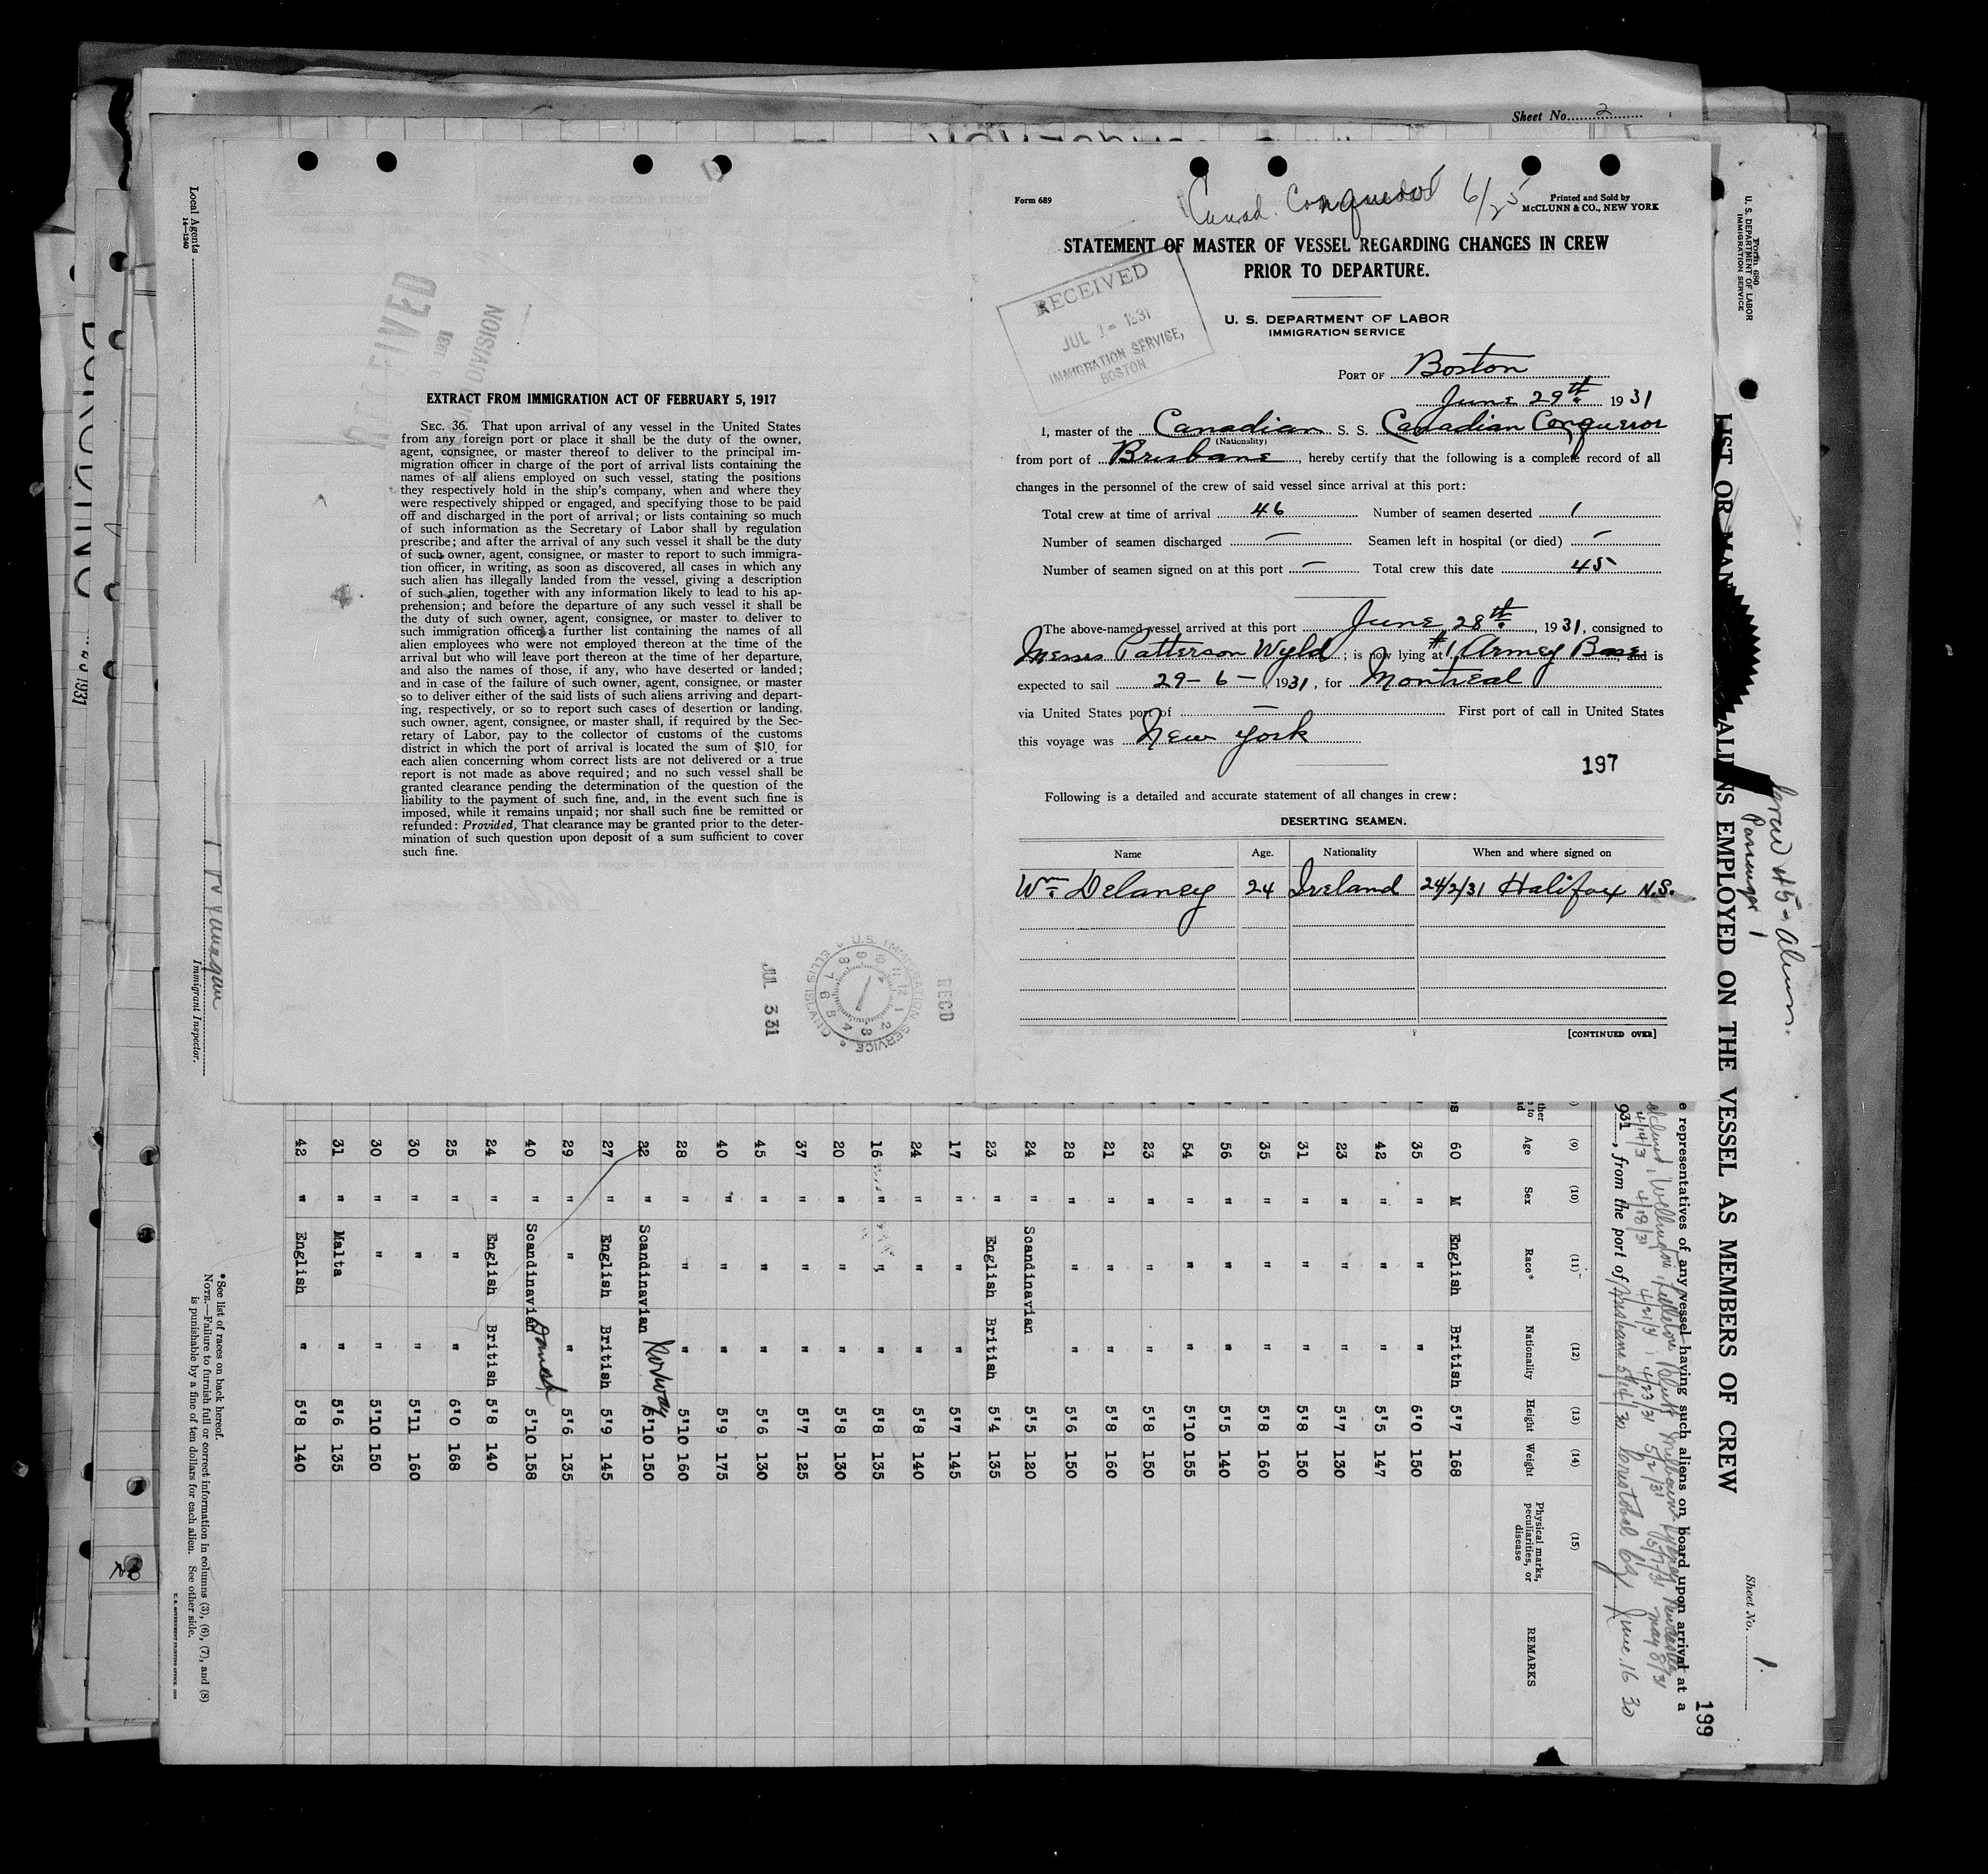 Sheet No. 2
Local Agents
14—1240
Immigrant Inspector.
RECEIVED
1931
DIVISION
EXTRACT FROM IMMIGRATION ACT OF FEBRUARY 5, 1917
SEC. 36. That upon arrival of any vessel in the United States
from any foreign port or place it shall be the duty of the owner,
agent, consignee, or master thereof to deliver to the principal im-
migration officer in charge of the port of arrival lists containing the
names of all aliens employed on such vessel, stating the positions
they respectively hold in the ship's company, when and where they
were respectively shipped or engaged, and specifying those to be paid
off and discharged in the port of arrival; or lists containing so much
of such information as the Secretary of Labor shall by regulation
prescribe; and after the arrival of any such vessel it shall be the duty
of such owner, agent, consignee, or master to report to such immigra-
tion officer, in writing, as soon as discovered, all cases in which any
such alien has illegally landed from the vessel, giving a description
of such alien, together with any information likely to lead to his ap-
prehension; and before the departure of any such vessel it shall be
the duty of such owner, agent, consignee, or master to deliver to
such immigration officer a further list containing the names of all
alien employees who were not employed thereon at the time of the
arrival but who will leave port thereon at the time of her departure,
and also the names of those, if any, who have deserted or landed;
and in case of the failure of such owner, agent, consignee, or master
so to deliver either of the said lists of such aliens arriving and depart-
ing, respectively, or so to report such cases of desertion or landing,
such owner, agent, consignee, or master shall, if required by the Sec-
retary of Labor, pay to the collector of customs of the customs
district in which the port of arrival is located the sum of $10 for
each alien concerning whom correct lists are not delivered or a true
report is not made as above required; and no such vessel shall be
granted clearance pending the determination of the question of the
liability to the payment of such fine, and, in the event such fine is
imposed, while it remains unpaid; nor shall such fine be remitted or
refunded: Provided, That clearance may be granted prior to the deter-
mination of such question upon deposit of a sum sufficient to cover
such fine.
JUL 3 31
U.S. IMMIGRATION SERVICE ELLIS ISLAND
REC'D
Form 689
Canad. Conqueror 6/25
Printed and Sold by
McCLUNN & CO., NEW YORK
STATEMENT OF MASTER OF VESSEL REGARDING CHANGES IN CREW
PRIOR TO DEPARTURE.
RECEIVED
JUL 1 - 1931
IMMIGRATION SERVICE,
BOSTON
U. S. DEPARTMENT OF LABOR
IMMIGRATION SERVICE
PORT OF Boston
June 29th 1931
I, master of the Canadian S. S. Canadian Conqueror
(Nationality)
from port of Brisbane, hereby certify that the following is a complete record of all
changes in the personnel of the crew of said vessel since arrival at this port:
Total crew at time of arrival 46 Number of seamen deserted 1
Number of seamen discharged — Seamen left in hospital (or died) —
Number of seamen signed on at this port — Total crew this date 45
The above-named vessel arrived at this port June 28th, 1931, consigned to
Messrs Patterson Wyld; is now lying at #1 Armey Base, and is
expected to sail 29-6-, 1931, for Montreal
via United States port of — First port of call in United States
this voyage was New York
197
Following is a detailed and accurate statement of all changes in crew:
DESERTING SEAMEN.
Name Age. Nationality When and where signed on
Wm. Delaney 24 Ireland 24/2/31 Halifax N.S.
[CONTINUED OVER]
Form 680
U. S. DEPARTMENT OF LABOR
IMMIGRATION SERVICE
Crew 45 - aliens.
Passenger 1
LIST OR MAN ALIENS EMPLOYED ON THE VESSEL AS MEMBERS OF CREW
Sheet No. 1.
199
e representatives of any vessel having such aliens on board upon arrival at a
4/14/31 4/18/31 4/21/31 4/23/31 5/2/31 5/7/31 May 8/31
931, from the port of Brisbane Cristobal June 16 30
(9) (10) (11) (12) (13) (14) (15)
Age Sex Race* Nationality Height Weight Physical marks, peculiarities, or disease REMARKS
60 M English British 5'7 168
35 " " " 6'0 150
42 " " " 5'5 147
23 " " " 5'7 130
31 " " " 5'8 150
35 " " " 5'8 160
56 " " " 5'5 140
54 " " " 5'10 155
23 " " " 5'8 150
21 " " " 5'8 160
28 " " " 5'6 150
24 " Scandinavian 5'5 120
23 " English British 5'4 135
17 " " " 5'7 145
24 " " " 5'8 140
16 " " " 5'8 135
20 " " " 5'8 130
37 " " " 5'7 125
45 " " " 5'6 130
40 " " " 5'9 175
28 " " " 5'10 160
22 " Scandinavian Norway 5'10 150
27 " English British 5'9 145
29 " " " 5'6 135
40 " Scandinavian Danish 5'10 158
24 " English British 5'8 140
25 " " " 6'0 168
30 " " " 5'11 160
30 " " " 5'10 150
31 " Malta " 5'6 135
42 " English " 5'8 140
*See list of races on back hereof.
NOTE.—Failure to furnish full or correct information in columns (3), (6), (7), and (8)
is punishable by a fine of ten dollars for each alien. See other side.